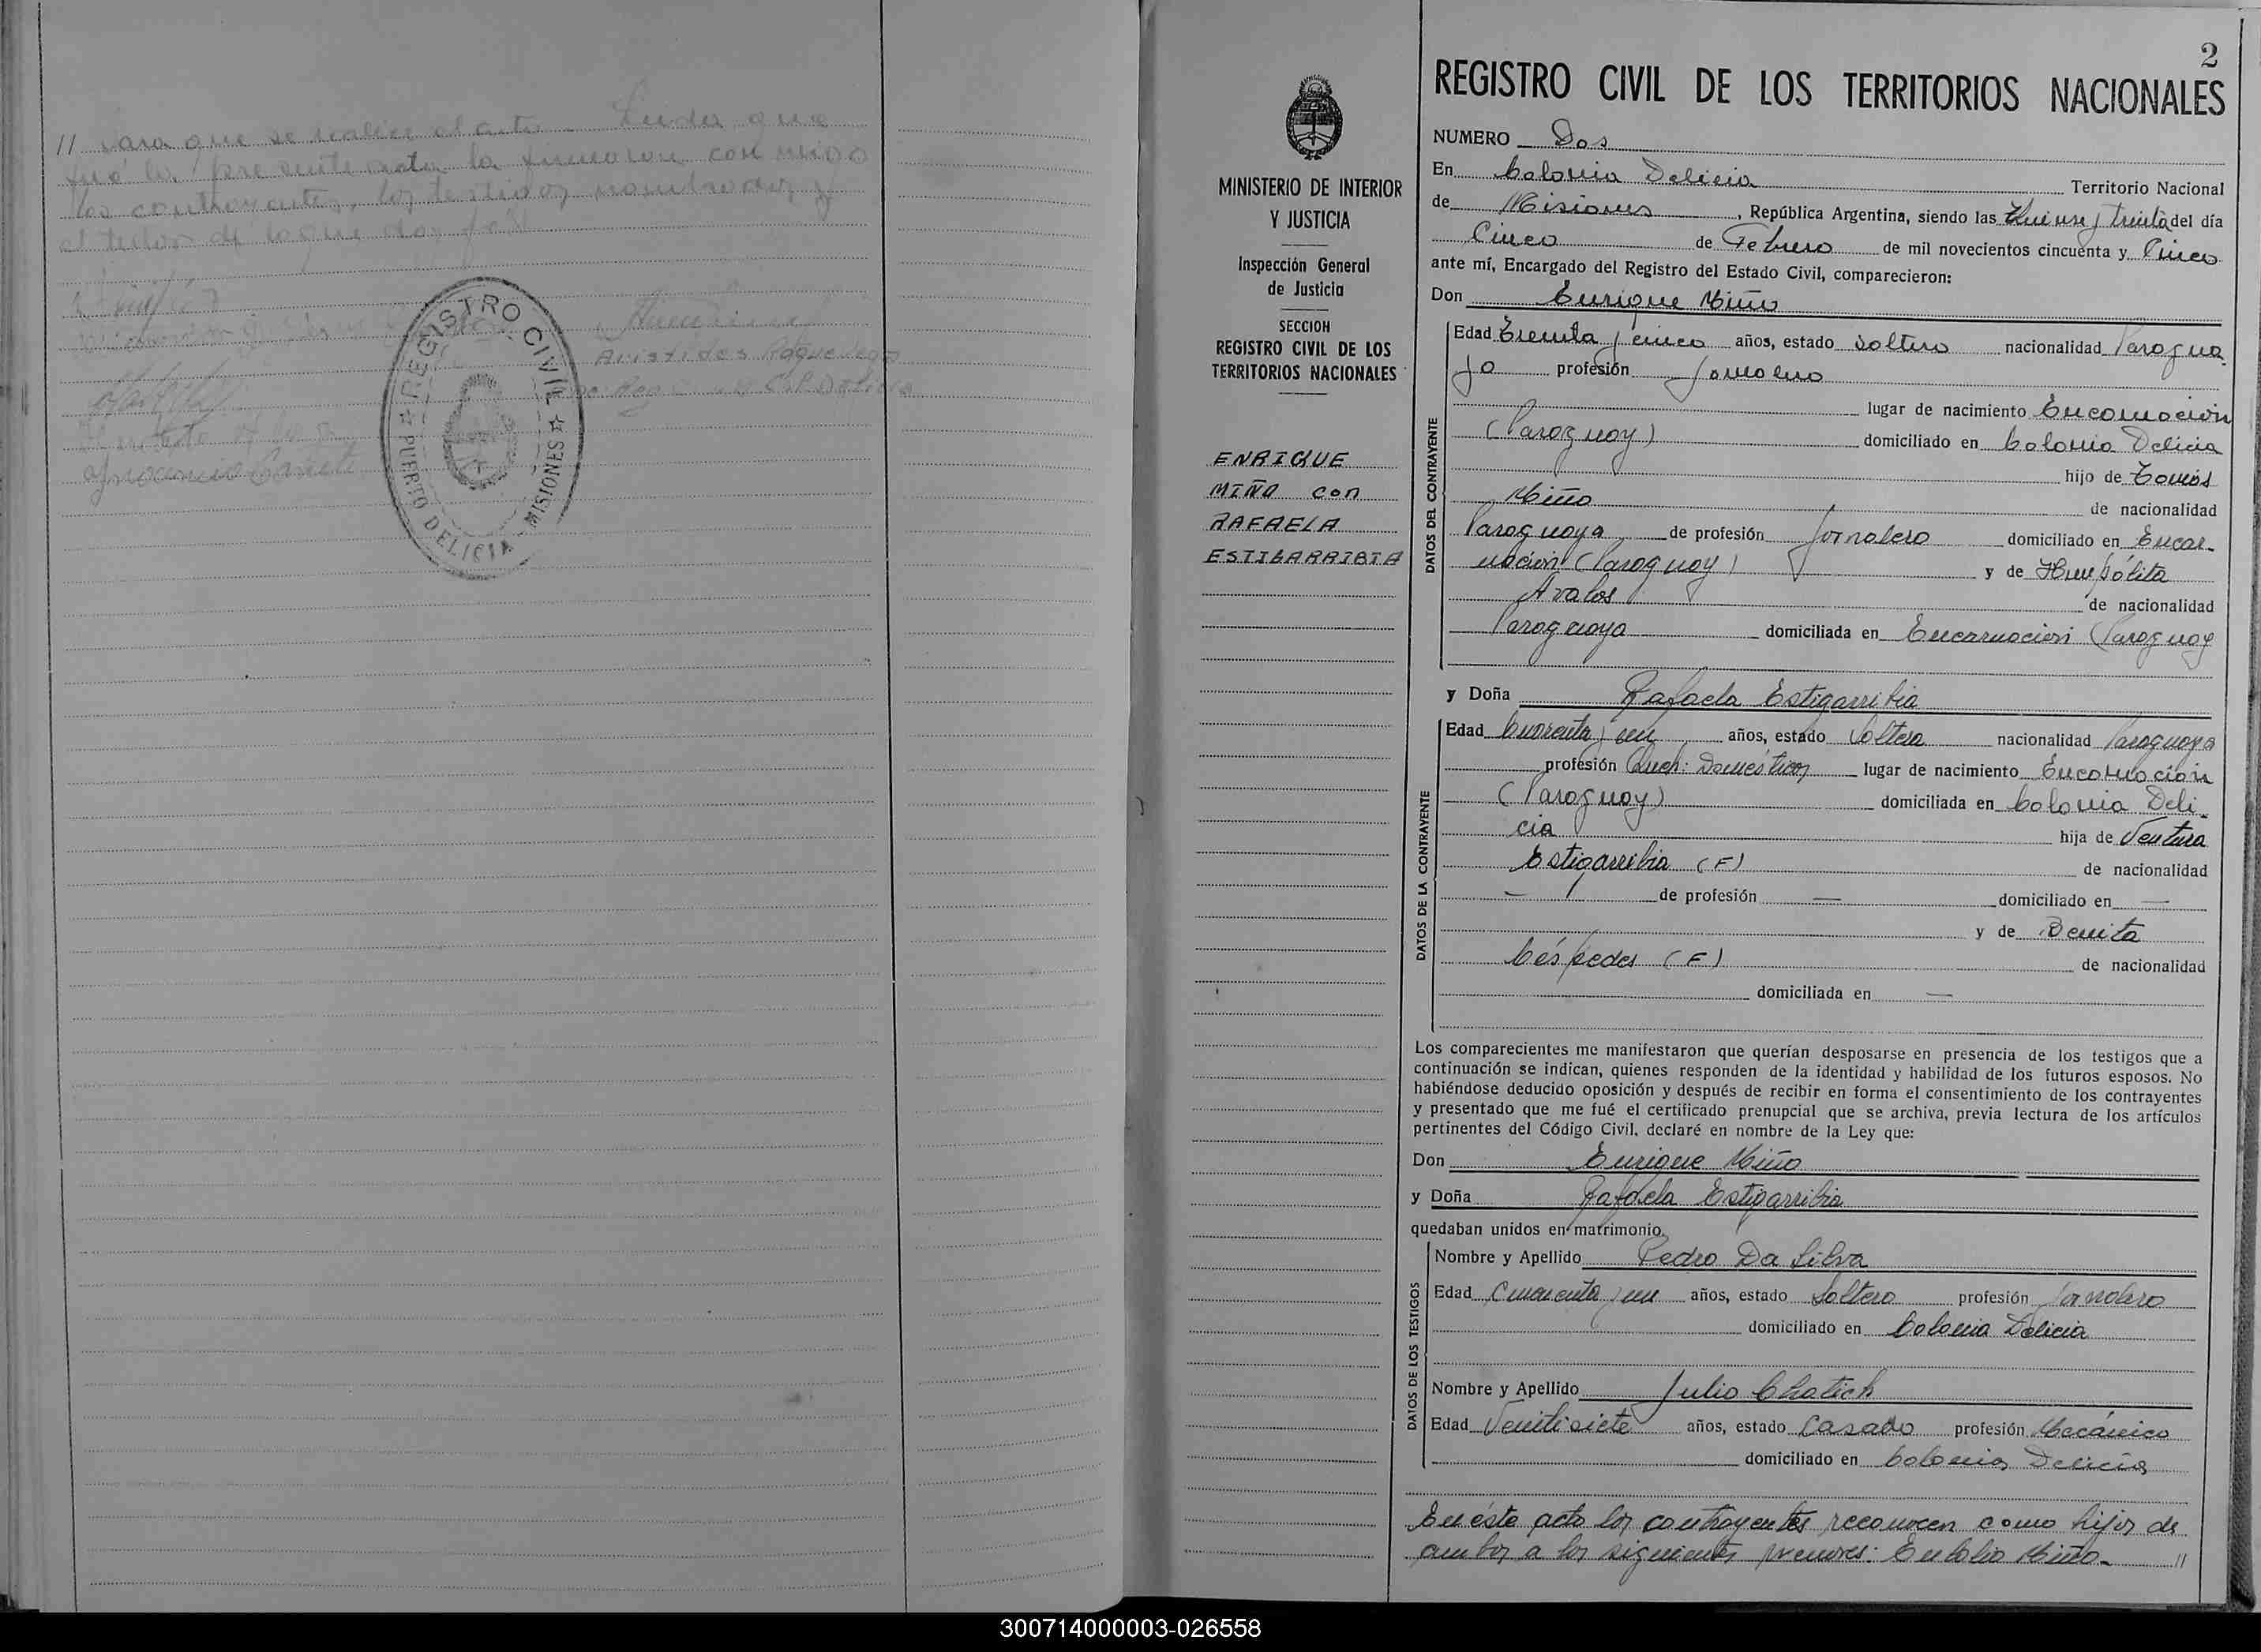 // para que se realice el acto. Leida que
fué la presente acta la firmaron conmigo
los contrayentes, los testigos nombrados y
el tutor de lo que doy fe
REGISTRO CIVIL
☆ PUERTO DELICIA - MISIONES ☆
2
REGISTRO CIVIL DE LOS TERRITORIOS NACIONALES
MINISTERIO DE INTERIOR
Y JUSTICIA
Inspección General
de Justicia
SECCION
REGISTRO CIVIL DE LOS
TERRITORIOS NACIONALES
ENRIQUE
MIÑO con
RAFAELA
ESTIGARRIBIA
NUMERO Dos
En Colonia Delicia Territorio Nacional
de Misiones, República Argentina, siendo las Quinse y treinta del día
Cinco de Febrero de mil novecientos cincuenta y Cinco
ante mí, Encargado del Registro del Estado Civil, comparecieron:
Don Enrique Miño
DATOS DEL CONTRAYENTE
Edad Treinta y cinco años, estado Soltero nacionalidad Paragua
ya profesión Jornalero
lugar de nacimiento Encarnación
(Paraguay) domiciliado en Colonia Delicia
hijo de Tomás
Miño de nacionalidad
Paraguaya de profesión Jornalero domiciliado en Encar-
nación (Paraguay) y de Humpólita
Avalos de nacionalidad
Paraguaya domiciliada en Encarnación (Paraguay
y Doña Rafaela Estigarribia
DATOS DE LA CONTRAYENTE
Edad Cuarenta y un años, estado Soltera nacionalidad Paraguaya
profesión Queh: Domésticos lugar de nacimiento Encarnación
(Paraguay) domiciliada en Colonia Deli-
cia hija de Ventura
Estigarribia (F) de nacionalidad
— de profesión — domiciliado en —
y de Benita
Céspedes (F) de nacionalidad
domiciliada en —
Los comparecientes me manifestaron que querían desposarse en presencia de los testigos que a
continuación se indican, quienes responden de la identidad y habilidad de los futuros esposos. No
habiéndose deducido oposición y después de recibir en forma el consentimiento de los contrayentes
y presentado que me fué el certificado prenupcial que se archiva, previa lectura de los artículos
pertinentes del Código Civil, declaré en nombre de la Ley que:
Don Enrique Miño
y Doña Rafaela Estigarribia
quedaban unidos en matrimonio.
DATOS DE LOS TESTIGOS
Nombre y Apellido Pedro Da Silva
Edad Cincuenta y un años, estado Soltero profesión Jornalero
domiciliado en Colonia Delicia
Nombre y Apellido Julio Chatich
Edad Ventisiete años, estado Casado profesión Mecánico
domiciliado en Colonia Delicia
En éste acto los contrayentes reconocen como hijos de
ambos a los siguientes menores: Eulalio Miño- //
300714000003-026558